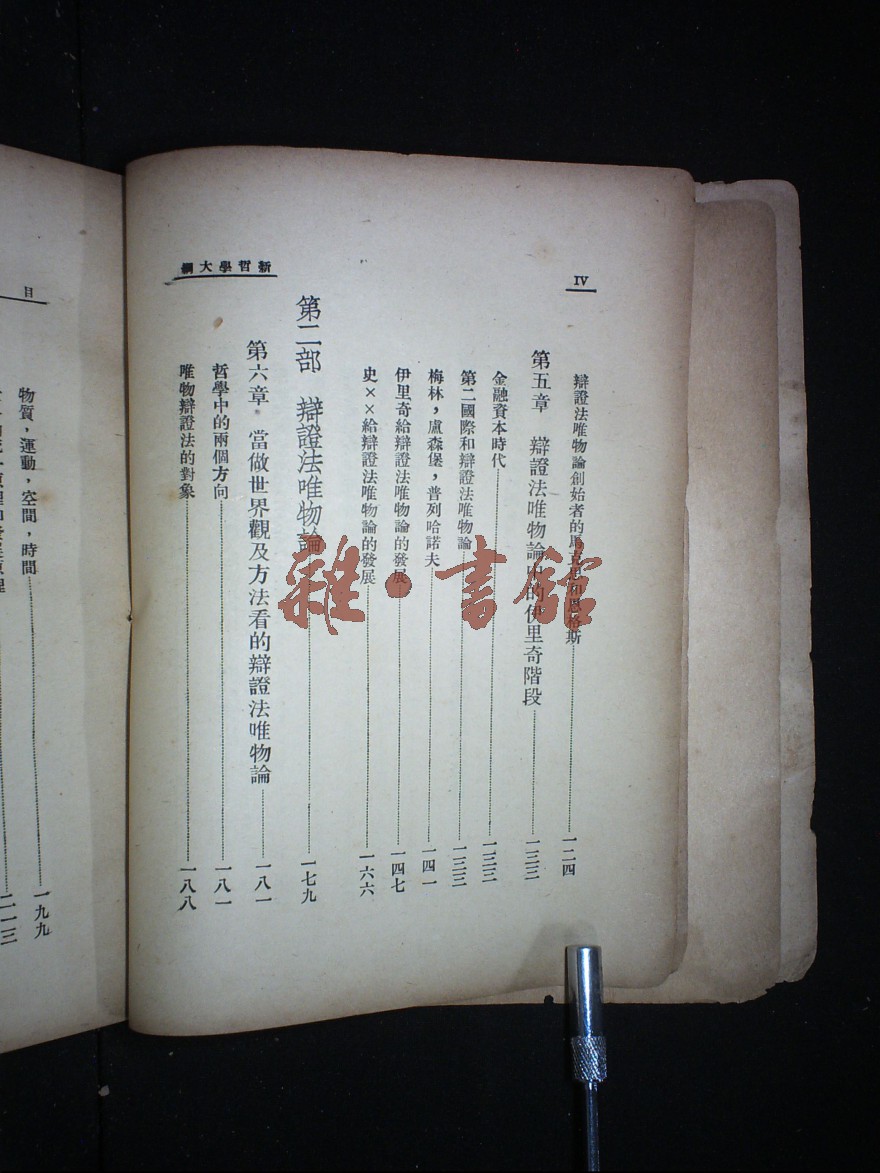 IV
新哲學大綱
辯證法唯物論創始者的馬克思和恩格斯……一二四
第五章 辯證法唯物論中的伊里奇階段……一三三
金融資本時代……一三三
第二國際和辯證法唯物論……一三三
梅林，盧森堡，普列哈諾夫……一四一
伊里奇給辯證法唯物論的發展……一四七
史××給辯證法唯物論的發展……一六六
第二部 辯證法唯物論……一七九
第六章 當做世界觀及方法看的辯證法唯物論……一八一
哲學中的兩個方向……一八一
唯物辯證法的對象……一八八
目
物質，運動，空間，時間……一九九
二一三
雜·書館